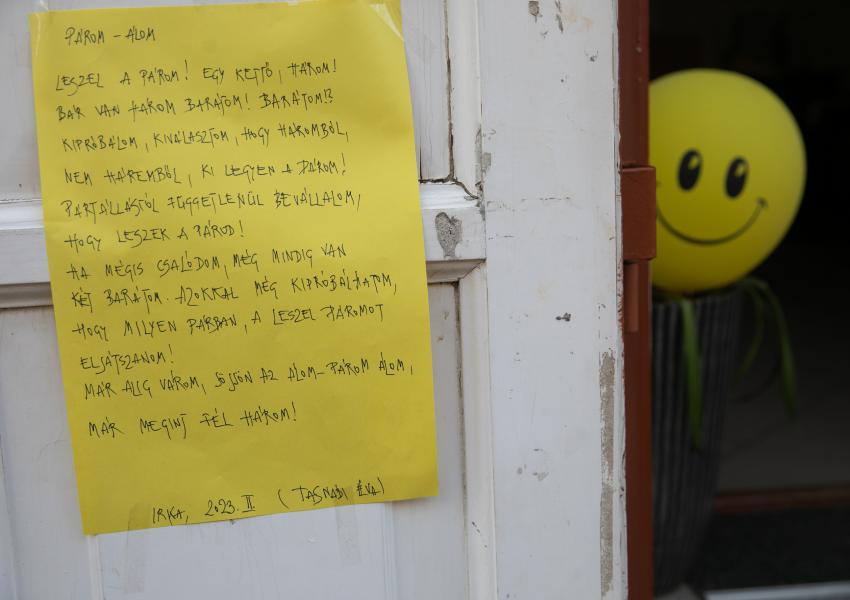 PÁROM - ÁLOM
LESZEL A PÁROM! EGY KETTŐ, HÁROM!
BÁR VAN HÁROM BARÁTOM! BARÁTOM!?
KIPRÓBÁLOM, KIVÁLASZTOM, HOGY HÁROMBÓL,
NEM HÁREMBŐL, KI LEGYEN A PÁROM!
PÁRTÁLLÁSTÓL FÜGGETLENÜL BEVÁLLALOM,
HOGY LESZEK A PÁROD!
HA MÉGIS CSALÓDOM, MÉG MINDIG VAN
KÉT BARÁTOM. AZOKKAL MÉG KIPRÓBÁLHATOM,
HOGY MILYEN PÁRBAN, A LESZEL PÁROMOT
ELJÁTSZANOM!
MÁR ALIG VÁROM, JÖJJÖN AZ ÁLOM-PÁROM ÁLOM,
MÁR MEGINT FÉL HÁROM!
IRKA, 2023. II (TASNÁDI ÉVA)